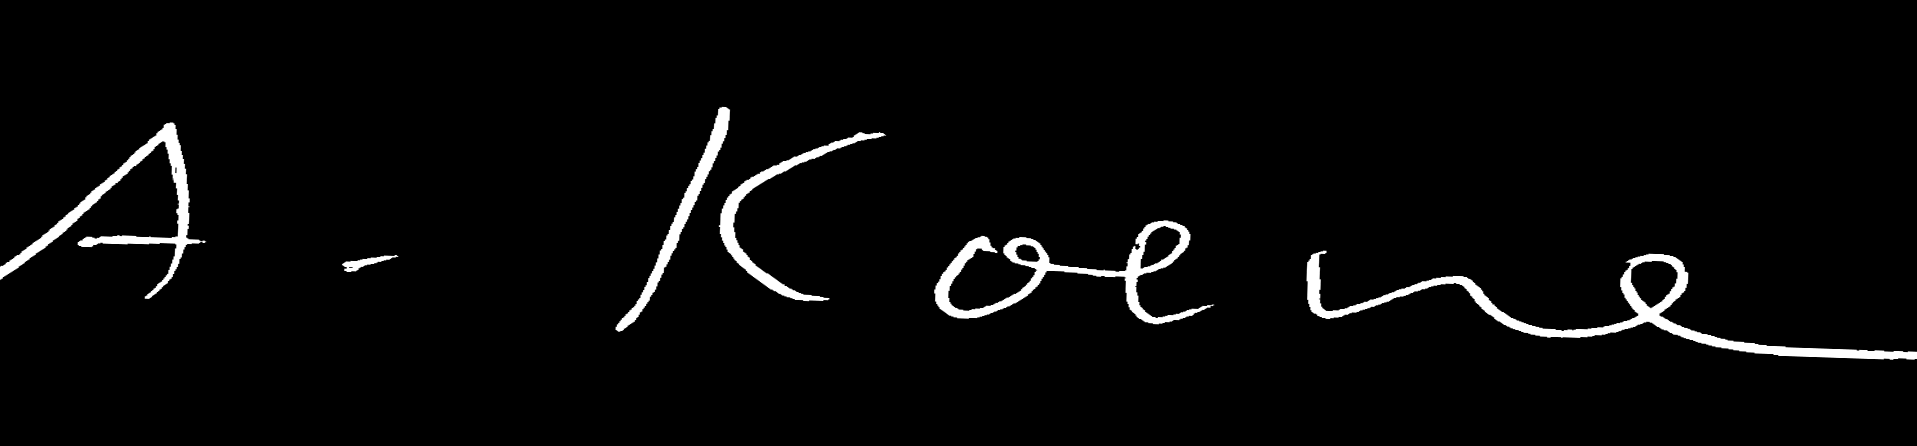 A- Koene